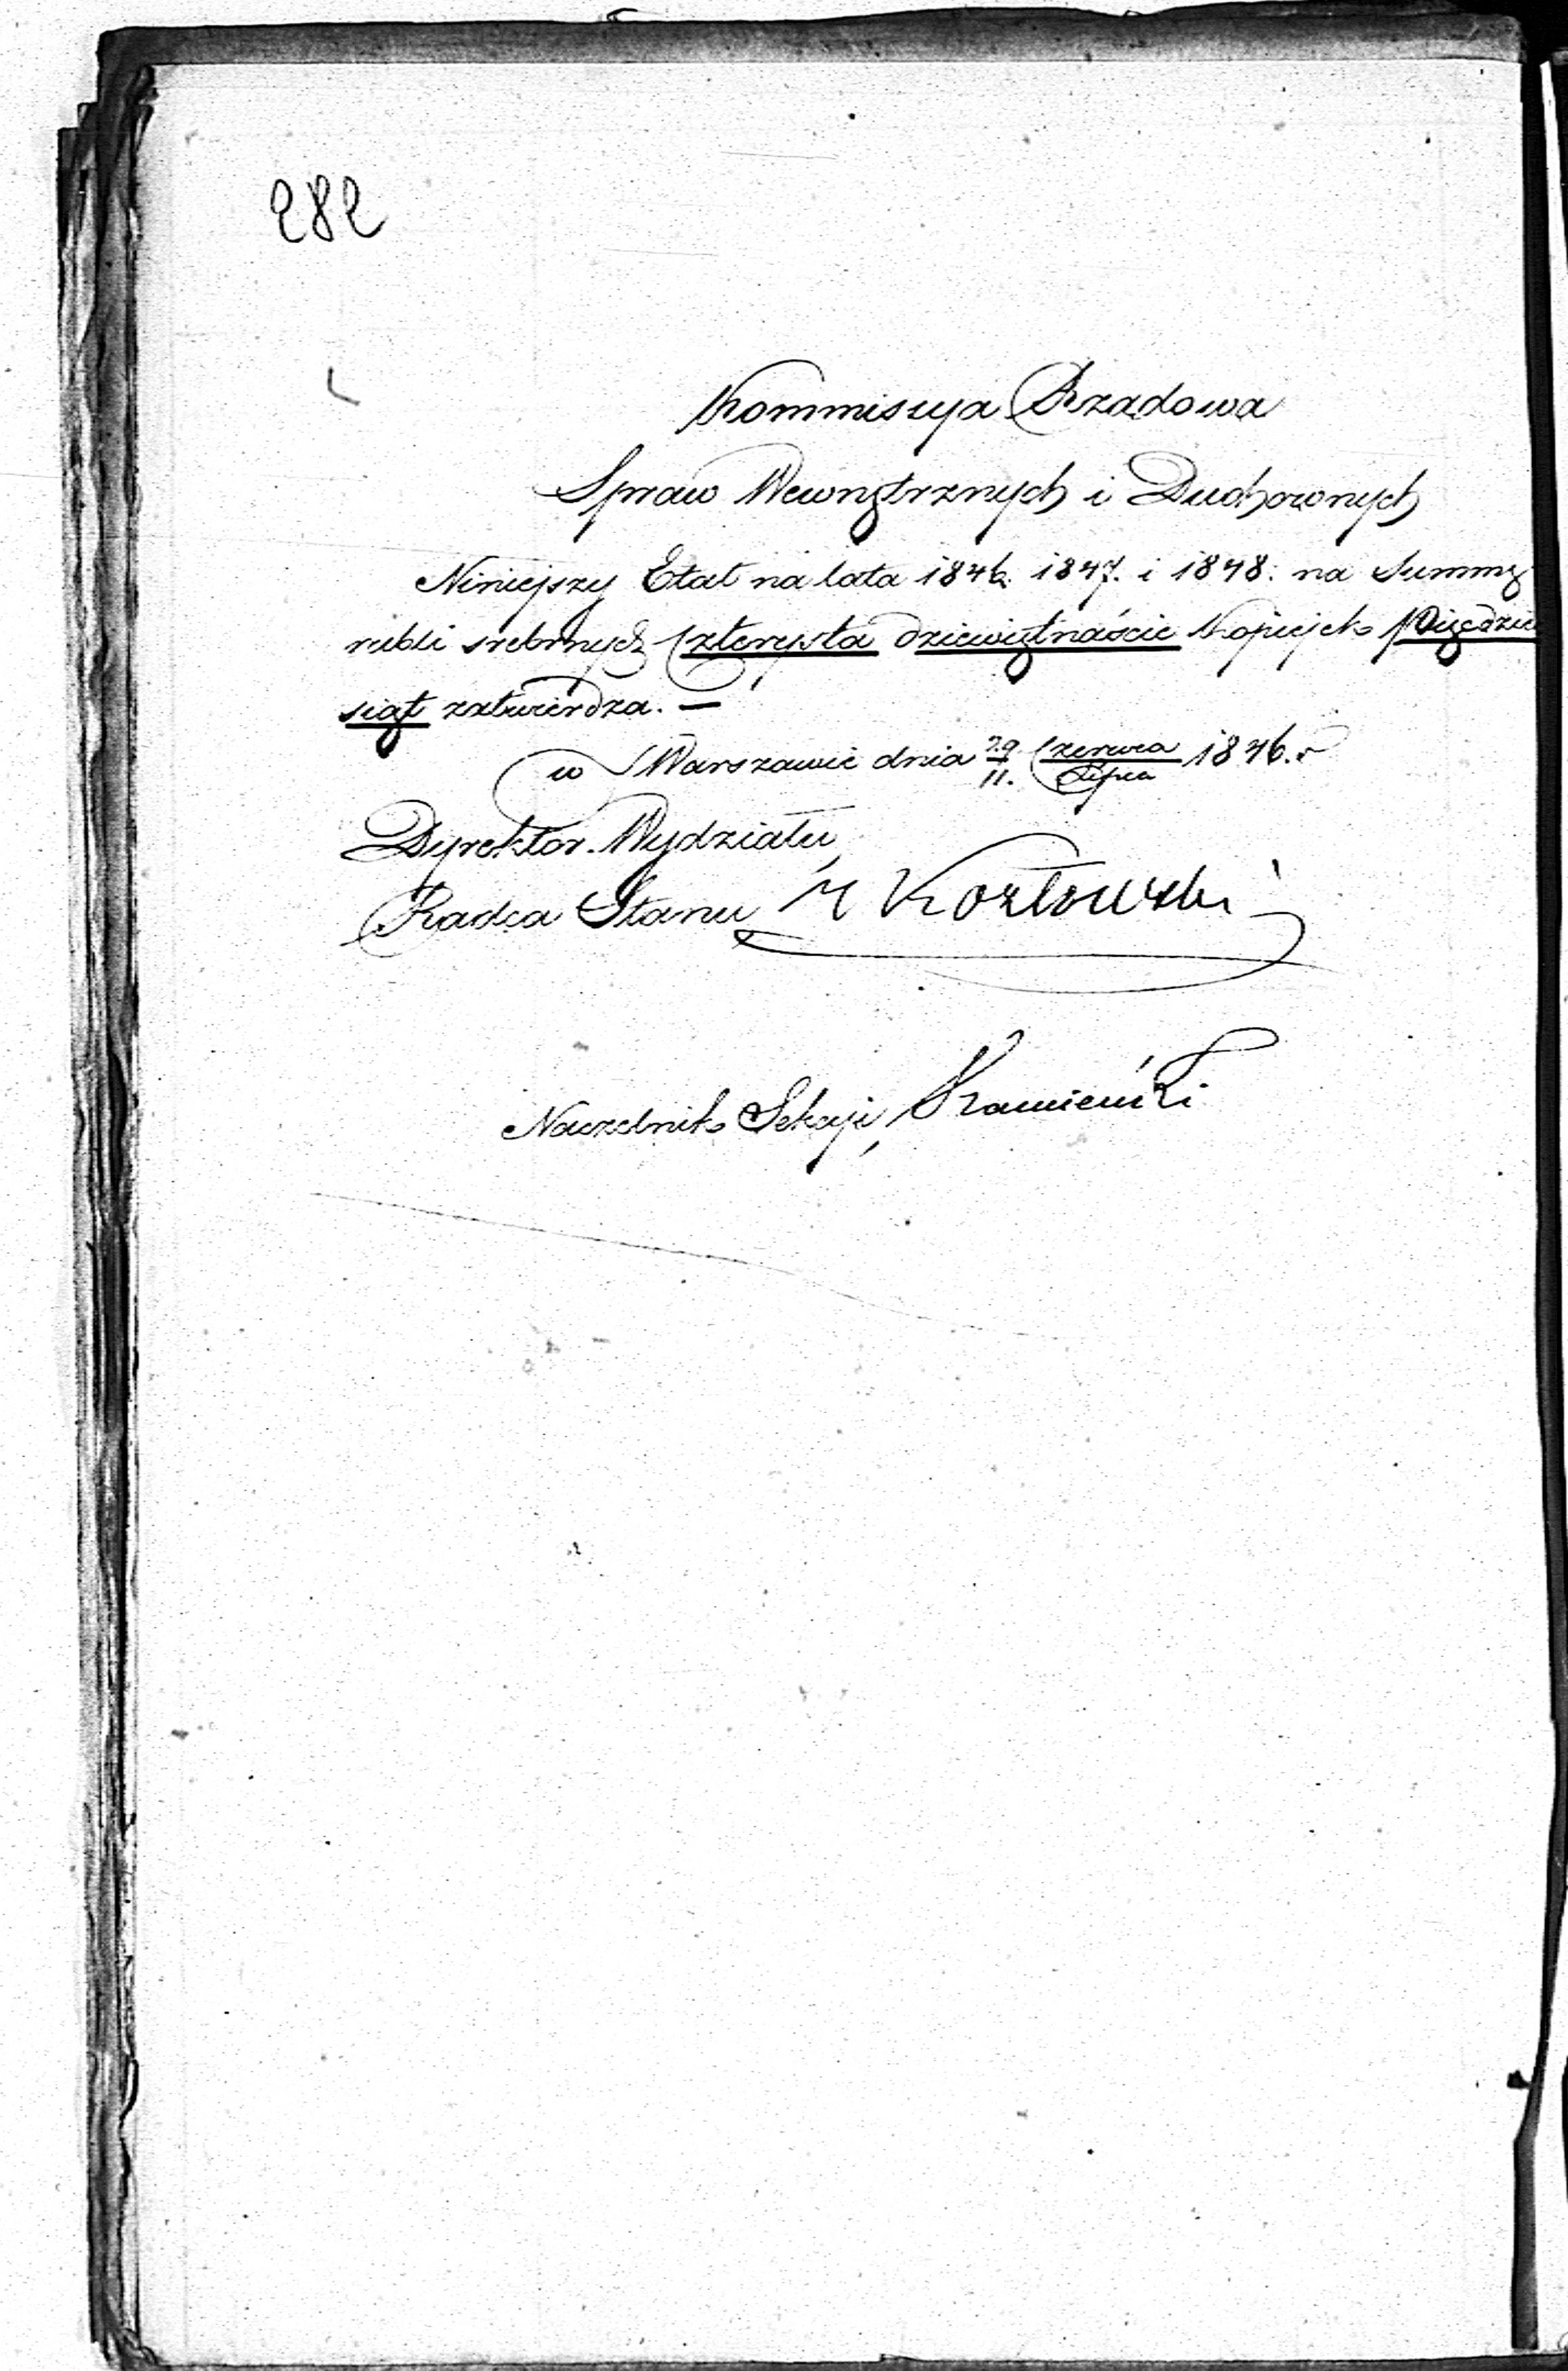 282
Kommissyja Rządowa
Spraw Wewnętrznych i Duchownych
Niniejszy Etat na lata 1846. 1847. i 1848. na Summę
rubli srebrnych Czterysta dziewiętnaście Kopiejek Pięćdzie
siąt zatwierdza. —
w Warszawie dnia 29/11. Czerwca/Lipca 1846. r
Dyrektor Wydziału,
Radca Stanu, Kozłowski
Naczelnik Sekcji, Kamieński